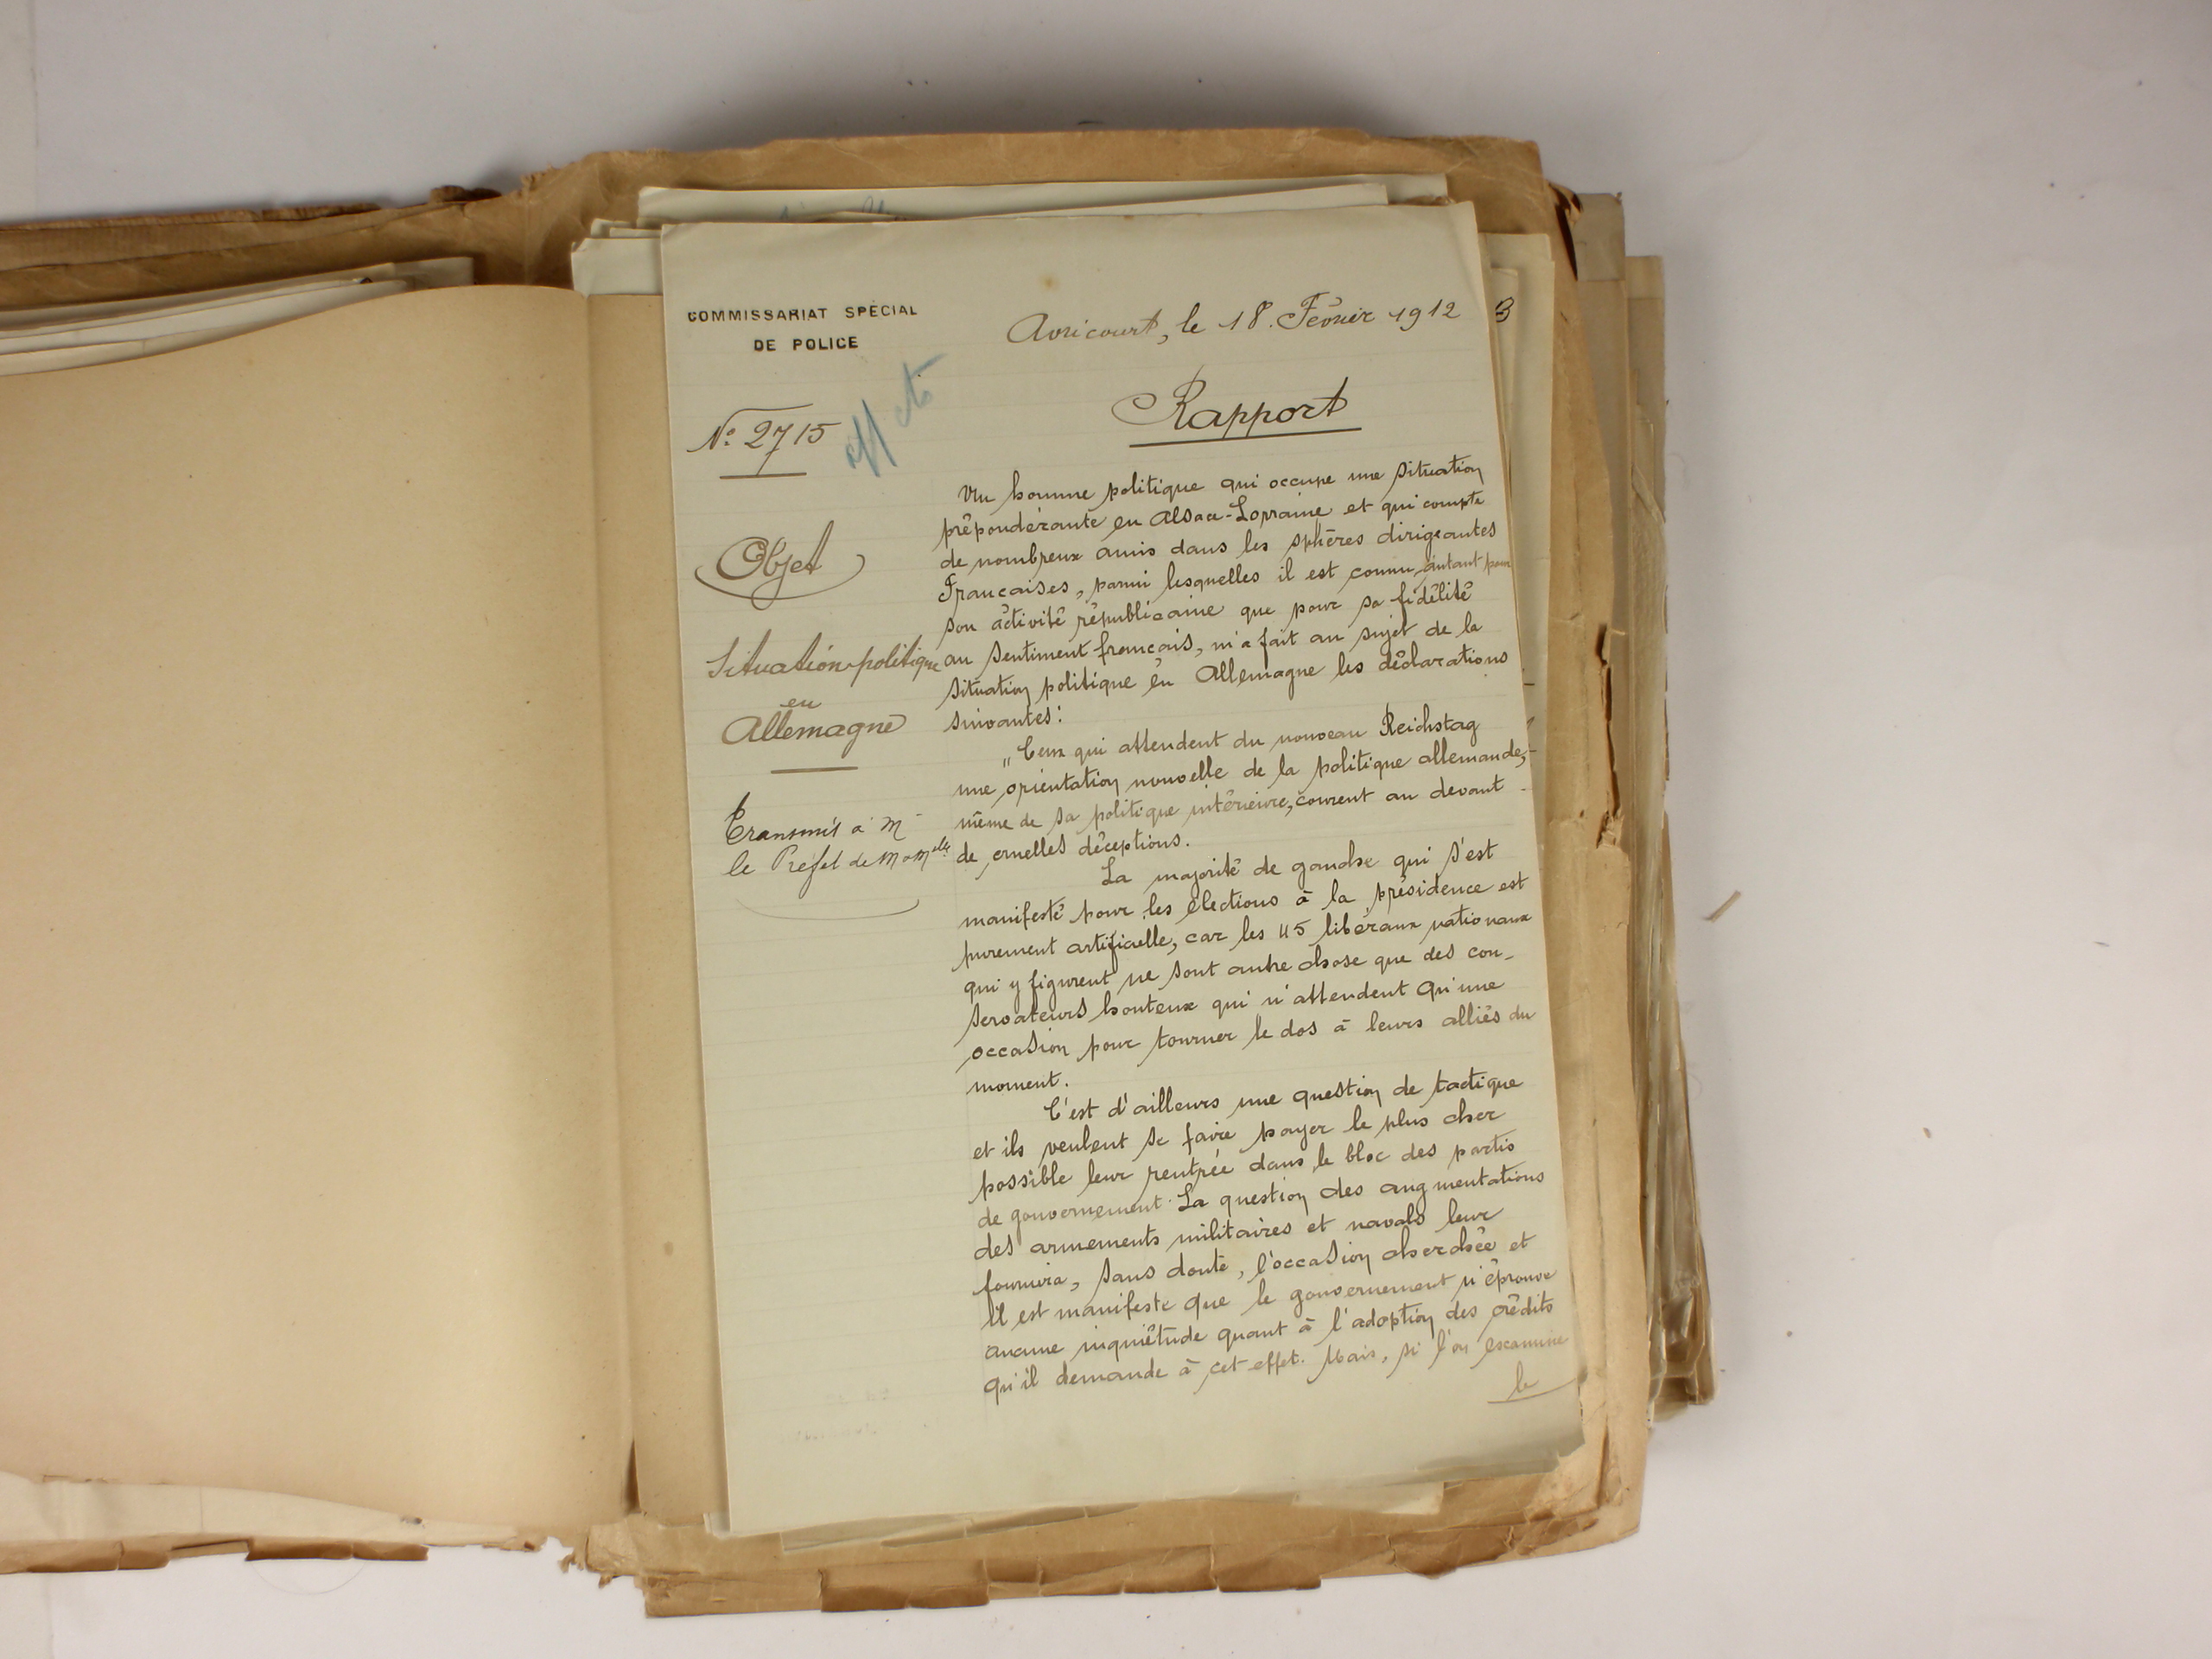 COMMISSARIAT SPÉCIAL
DE POLICE
Avricourt, le 18. Février 1912
Nº 2715
Rapport
Objet
Situation politique
en
Allemagne
Transmis à Mr
le Préfet de M et Mlle
Un homme politique qui occupe une situation
prépondérante en Alsace-Lorraine et qui compte
de nombreux amis dans les sphères dirigeantes
Françaises, parmi lesquelles il est connu autant pour
son activité républicaine que pour sa fidélité
au sentiment français, m'a fait au sujet de la
situation politique en Allemagne les déclarations
suivantes:
„Ceux qui attendent du nouveau Reichstag
une orientation nouvelle de la politique allemande,
même de sa politique intérieure, courent au devant
de cruelles déceptions.
La majorité de gauche qui s'est
manifesté pour les élections à la présidence est
purement artificielle, car les 45 libéraux nationaux
qui y figurent ne sont autre chose que des con-
servateurs honteux qui n'attendent qu'une
occasion pour tourner le dos à leurs alliés du
moment.
C'est d'ailleurs une question de tactique
et ils veulent se faire payer le plus cher
possible leur rentrée dans le bloc des partis
de gouvernement. La question des augmentations
des armements militaires et navals leur
fournira, sans doute, l'occasion cherchée et
il est manifeste que le gouvernement n'éprouve
aucune inquiétude quant à l'adoption des crédits
qu'il demande à cet effet. Mais, si l'on examine
le